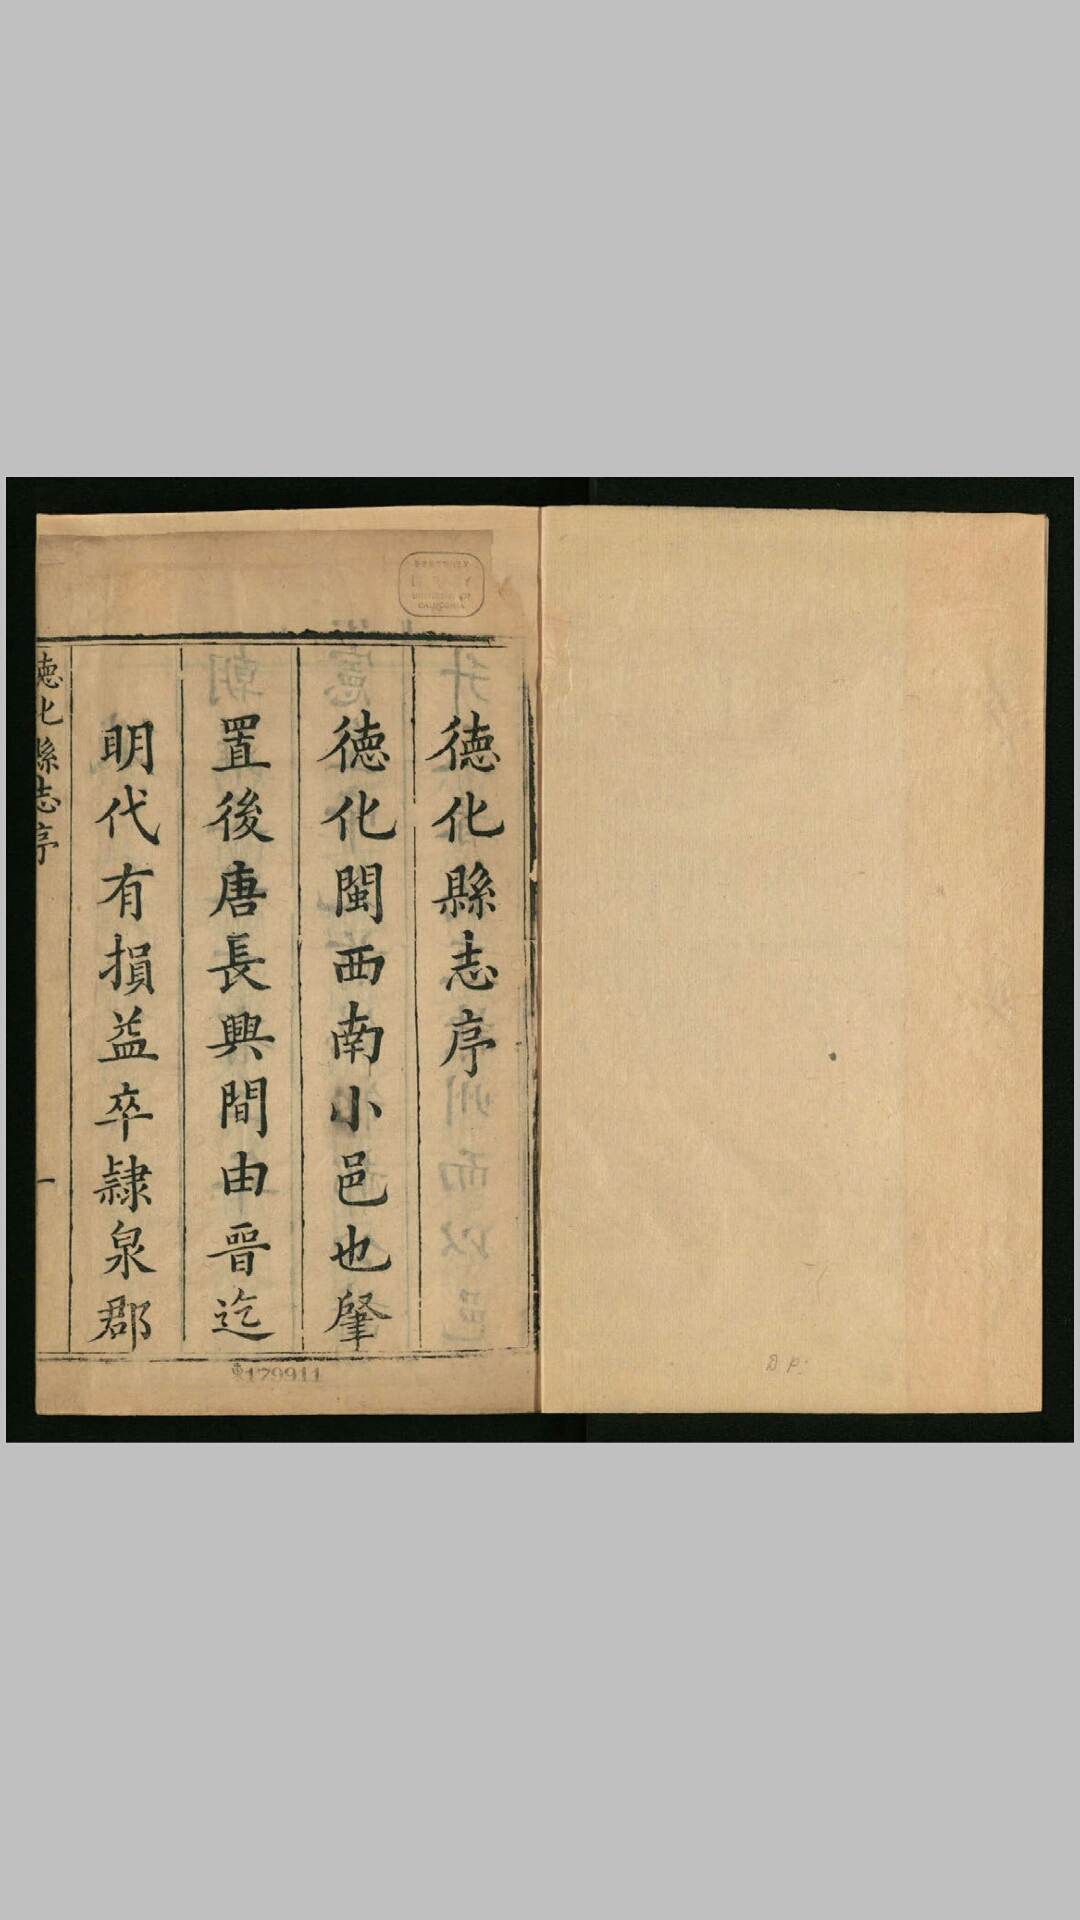 德化縣志序
德化閩西南小邑也肇
置後唐長興間由晉迄
明代有損益卒隷泉郡
德化縣志序
一
東179911
LIBRARY
UNIVERSITY OF
CALIFORNIA
D.P.